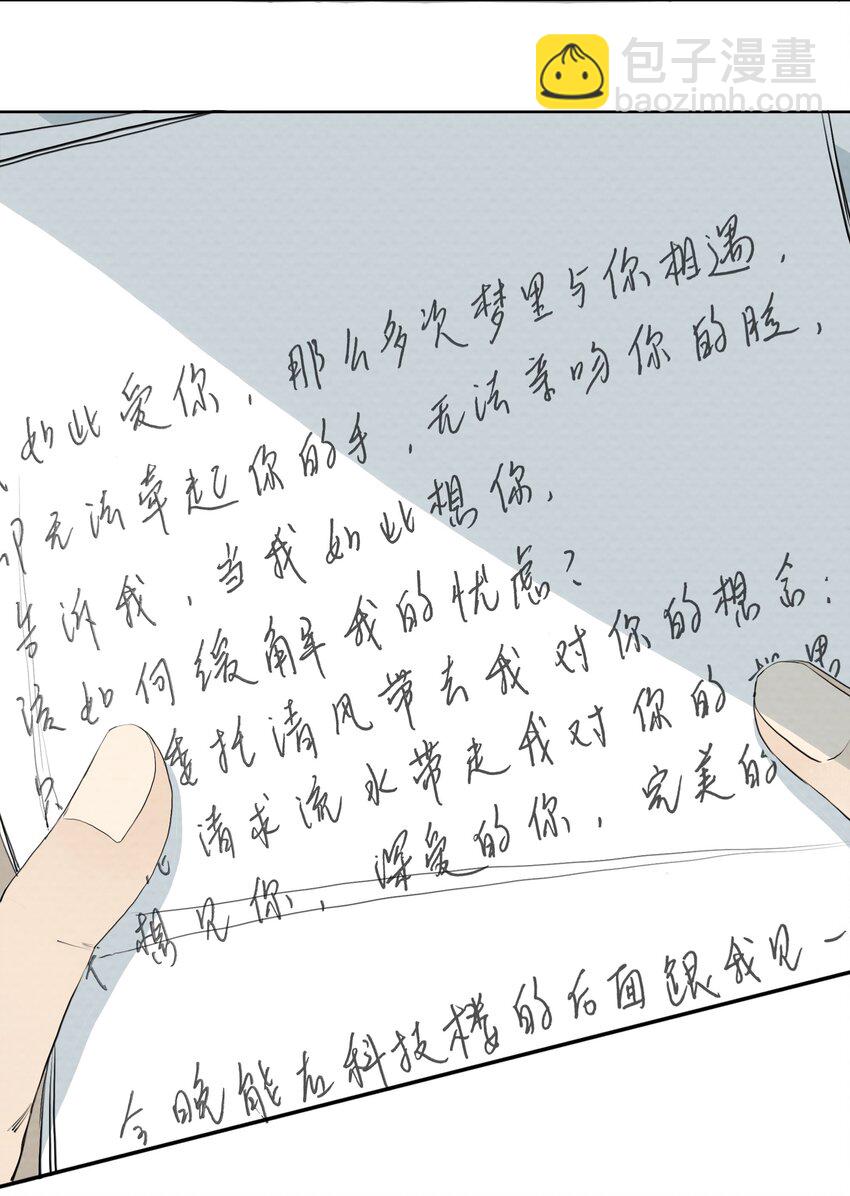 包子漫畫
baozimh.com
如此爱你，那么多次梦里与你相遇，
却无法牵起你的手，无法亲吻你的脸，
告诉我，当我如此想你，
该如何缓解我的忧虑？
委托清风带去我对你的想念；
请求流水带走我对你的
想见你，深爱的你，完美的
今晚能在科技楼的后面跟我见一